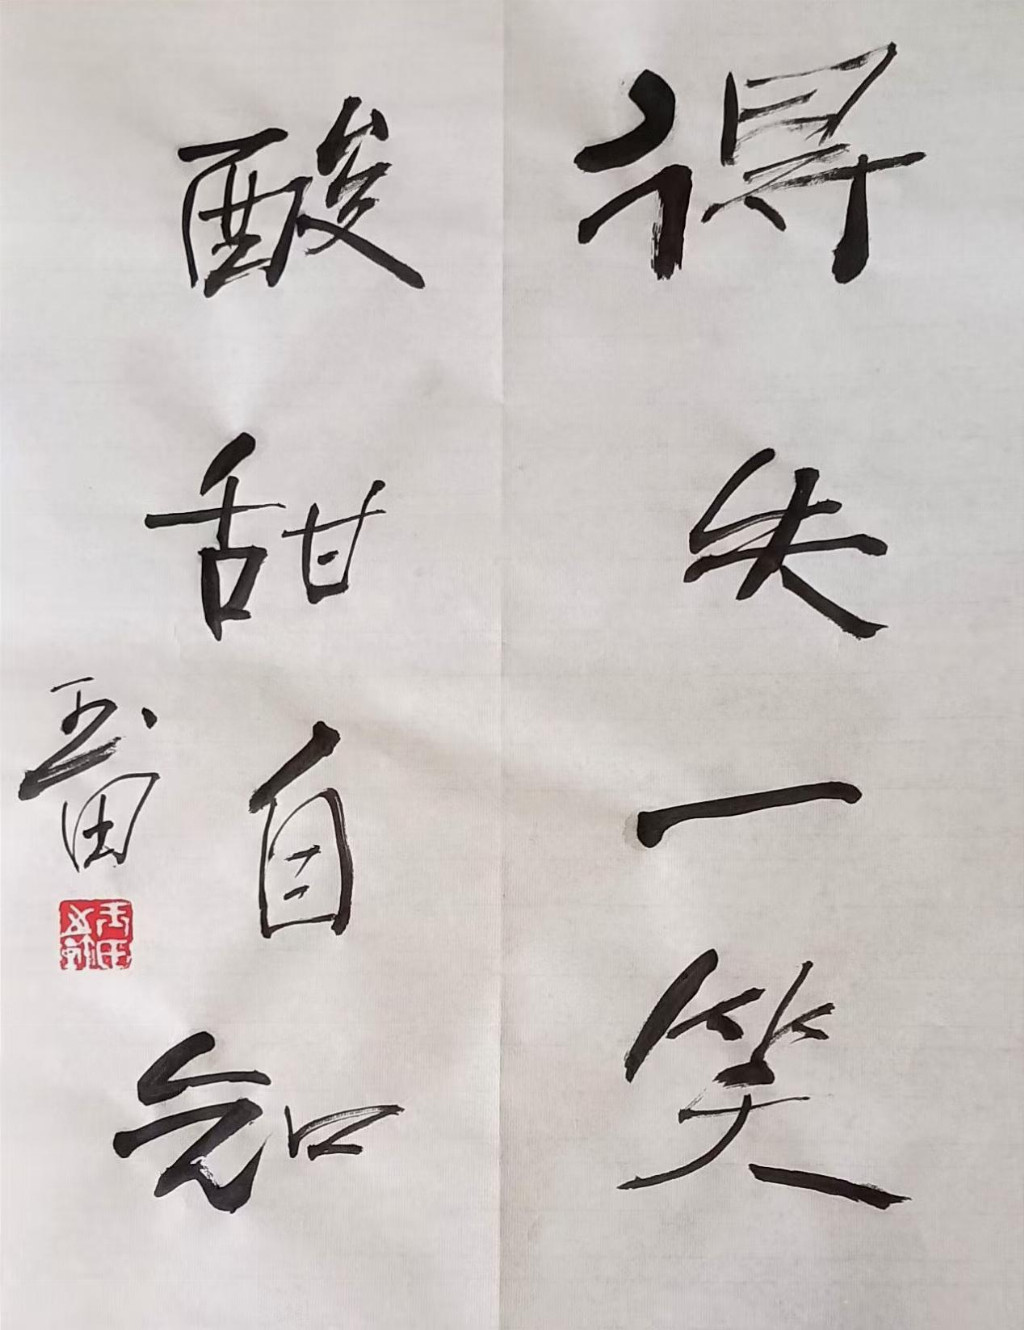 得失一笑
酸甜自知